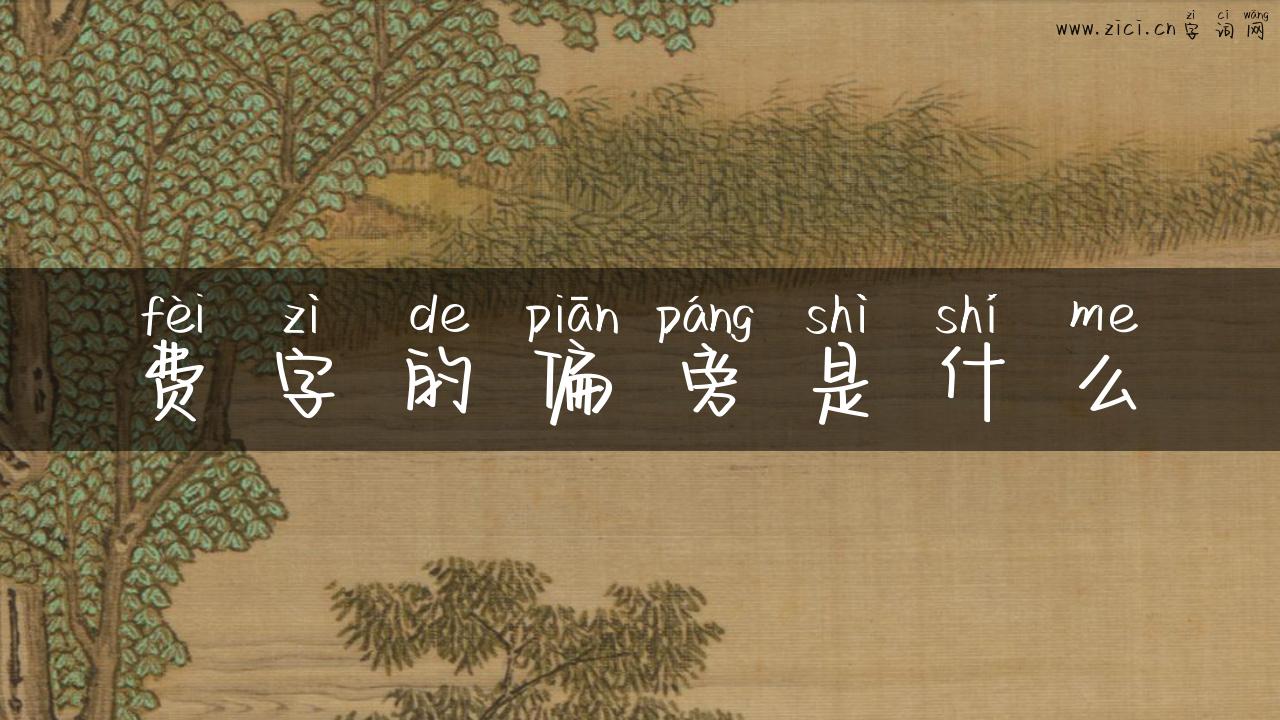 zì cí wǎng
www.zici.cn字词网
fèi zì de piān páng shì shí me
费字的偏旁是什么